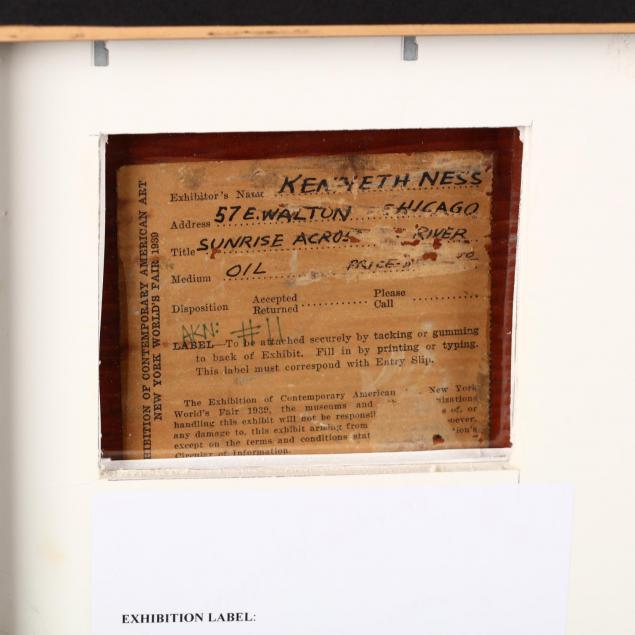 HIBITION OF CONTEMPORARY AMERICAN ART
NEW YORK WORLD'S FAIR 1939
Exhibitor's Name KENNETH NESS
Address 57 E. WALTON CHICAGO
Title SUNRISE ACROS RIVER
Medium OIL PRICE
Disposition Accepted Returned Please Call
AKN: #11
LABEL—To be attached securely by tacking or gumming
to back of Exhibit. Fill in by printing or typing.
This label must correspond with Entry Slip.
The Exhibition of Contemporary American New York
World's Fair 1939, the museums and nizations
handling this exhibit will not be responsil s of, or
any damage to, this exhibit arising from oever,
except on the terms and conditions stat tion's
Circular of Information.
EXHIBITION LABEL: